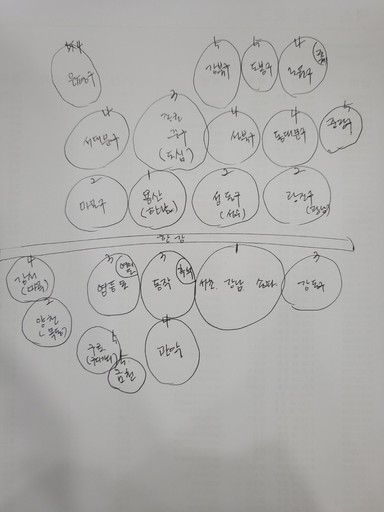 4
은평구
5
강북구
5
도봉구
4
노원구
4
서대문구
3
종로
중구
(도심)
4
성북구
4
동대문구
5
중랑구
2
마포구
1
용산
(한남)
2
성동구
(성수)
2
광진구
(광장)
한강
4
강서
(마곡)
2
양천
(목동)
3
영등포
여의도
3
동작
흑석
1
서초 강남 송파
3
강동구
5
구로
5
금천
4
관악